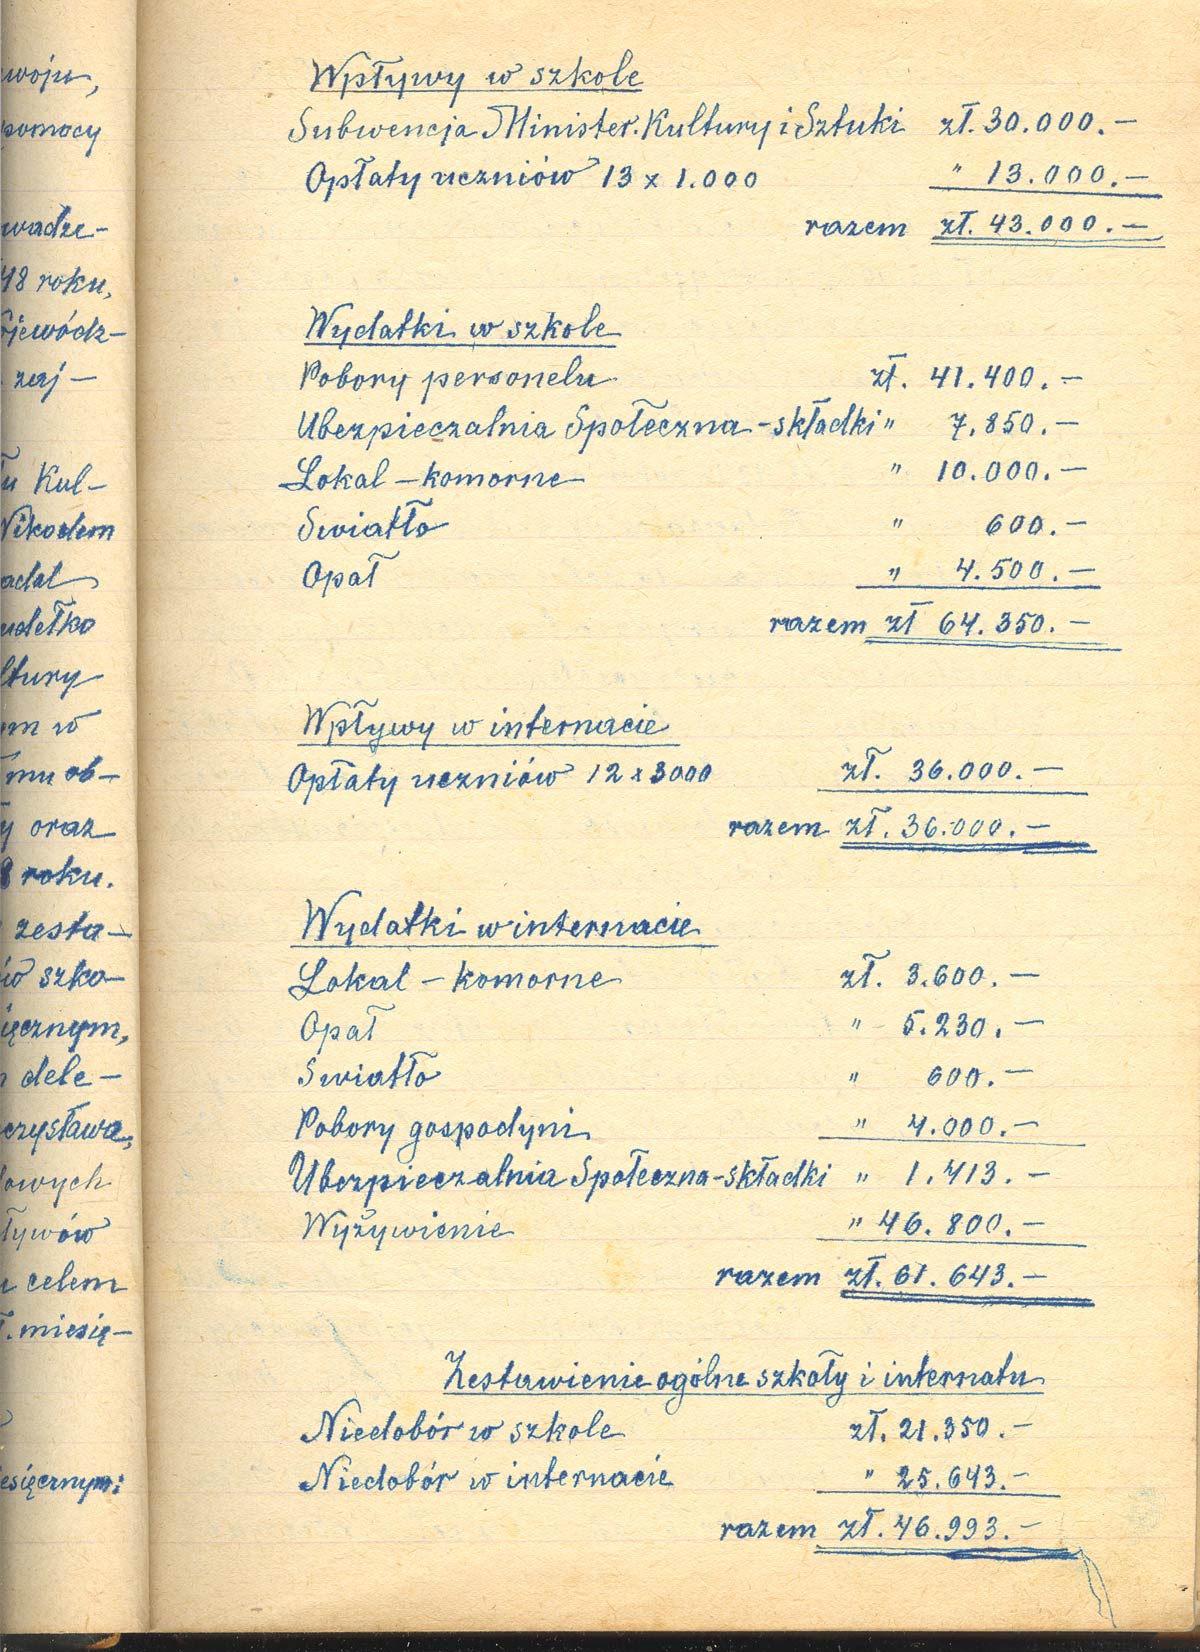 woju,
pomocy
wadze-
48 roku,
ojewódz-
zaj-
tu Kul-
Nikodem
adal
udełko
ltury
em w
mu ob-
y oraz
8 roku.
zesta-
ów szko-
ięcznym,
dele-
eczysława,
owych
ływów
celem
ł. miesię-
esięcznym:
Wpływy w szkole
Subwencja Minister. Kultury i Sztuki zł. 30.000.-
Opłaty uczniów 13 x 1.000 " 13.000.-
razem zł. 43.000.-
Wydatki w szkole
Pobory personelu zł. 41.400.-
Ubezpieczalnia Społeczna - składki " 7.850.-
Lokal - komorne " 10.000.-
Swiatło " 600.-
Opał " 4.500.-
razem zł 64.350.-
Wpływy w internacie
Opłaty uczniów 12 x 3000 zł. 36.000.-
razem zł. 36.000.-
Wydatki w internacie
Lokal - komorne zł. 3.600.-
Opał " 5.230.-
Swiatło " 600.-
Pobory gospodyni " 4.000.-
Ubezpieczalnia Społeczna - składki " 1.413.-
Wyżywienie " 46.800.-
razem zł. 61.643.-
Zestawienie ogólne szkoły i internatu
Niedobór w szkole zł. 21.350.-
Niedobór w internacie " 25.643.-
razem zł. 46.993.-